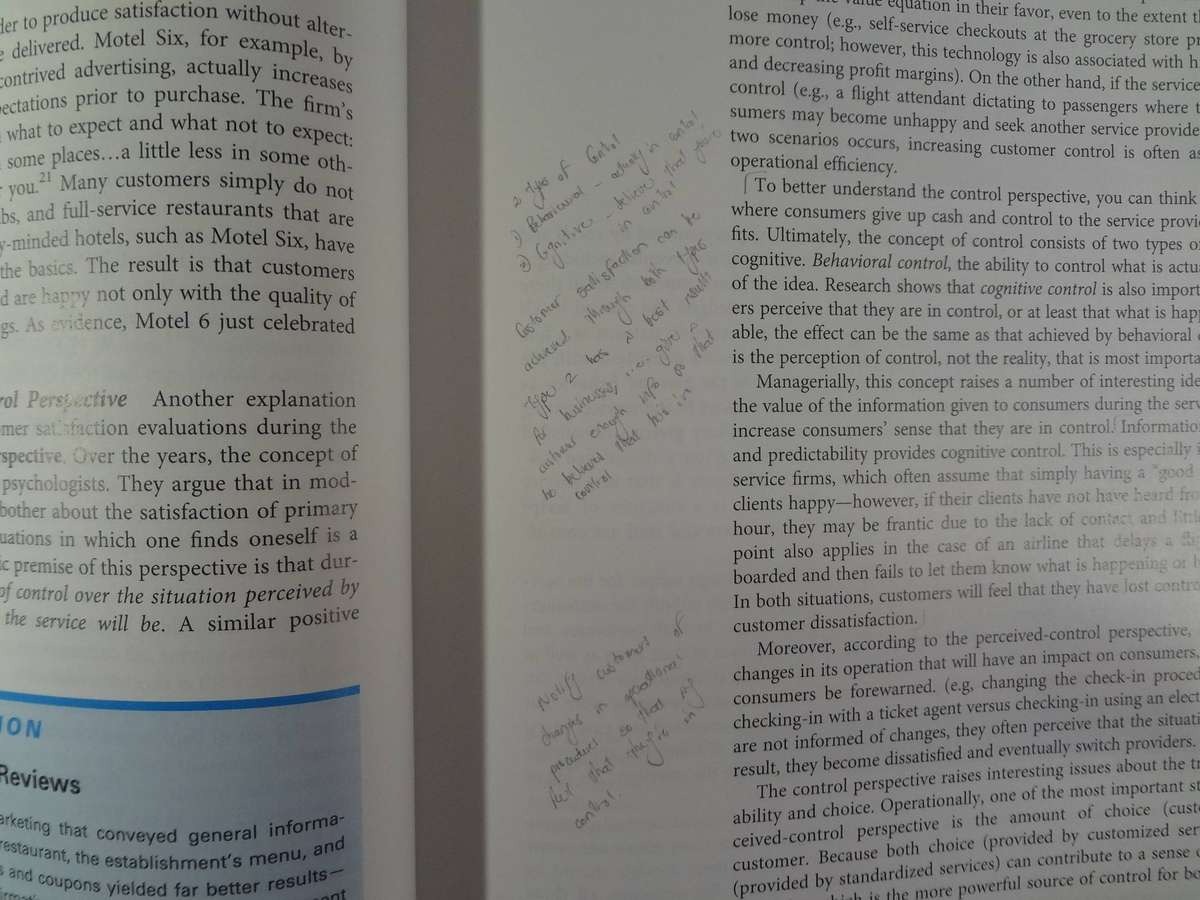 der to produce satisfaction without alter-
e delivered. Motel Six, for example, by
contrived advertising, actually increases
pectations prior to purchase. The firm's
what to expect and what not to expect:
some places...a little less in some oth-
you.21 Many customers simply do not
bs, and full-service restaurants that are
y-minded hotels, such as Motel Six, have
the basics. The result is that customers
d are happy not only with the quality of
gs. As evidence, Motel 6 just celebrated
rol Perspective Another explanation
mer satisfaction evaluations during the
spective. Over the years, the concept of
psychologists. They argue that in mod-
bother about the satisfaction of primary
uations in which one finds oneself is a
ic premise of this perspective is that dur-
of control over the situation perceived by
the service will be. A similar positive
ION
Reviews
arketing that conveyed general informa-
restaurant, the establishment's menu, and
s and coupons yielded far better results—
2 types of Control
1) Behavioural - actually in control
2) Cognitive - believe that you're
in control
Customer satisfaction can be
achieved through both types
Type 2 has a best results
for businesses, ... give a
customer enough info so that
to believe that he's in
control
Notify customers of
changes in operational
procedures so that
feel that they're in
control.
value equation in their favor, even to the extent th
lose money (e.g., self-service checkouts at the grocery store pr
more control; however, this technology is also associated with h
and decreasing profit margins). On the other hand, if the service
control (e.g., a flight attendant dictating to passengers where t
sumers may become unhappy and seek another service provide
two scenarios occurs, increasing customer control is often as
operational efficiency.
To better understand the control perspective, you can think
where consumers give up cash and control to the service provi
fits. Ultimately, the concept of control consists of two types o
cognitive. Behavioral control, the ability to control what is actua
of the idea. Research shows that cognitive control is also import
ers perceive that they are in control, or at least that what is happ
able, the effect can be the same as that achieved by behavioral
is the perception of control, not the reality, that is most importa
Managerially, this concept raises a number of interesting ide
the value of the information given to consumers during the serv
increase consumers' sense that they are in control. Information
and predictability provides cognitive control. This is especially i
service firms, which often assume that simply having a "good
clients happy—however, if their clients have not have heard fro
hour, they may be frantic due to the lack of contact and little
point also applies in the case of an airline that delays a flig
boarded and then fails to let them know what is happening or h
In both situations, customers will feel that they have lost contro
customer dissatisfaction.
Moreover, according to the perceived-control perspective,
changes in its operation that will have an impact on consumers,
consumers be forewarned. (e.g, changing the check-in proced
checking-in with a ticket agent versus checking-in using an elect
are not informed of changes, they often perceive that the situati
result, they become dissatisfied and eventually switch providers.
The control perspective raises interesting issues about the tr
ability and choice. Operationally, one of the most important st
ceived-control perspective is the amount of choice (custo
customer. Because both choice (provided by customized serv
(provided by standardized services) can contribute to a sense o
which is the more powerful source of control for bo